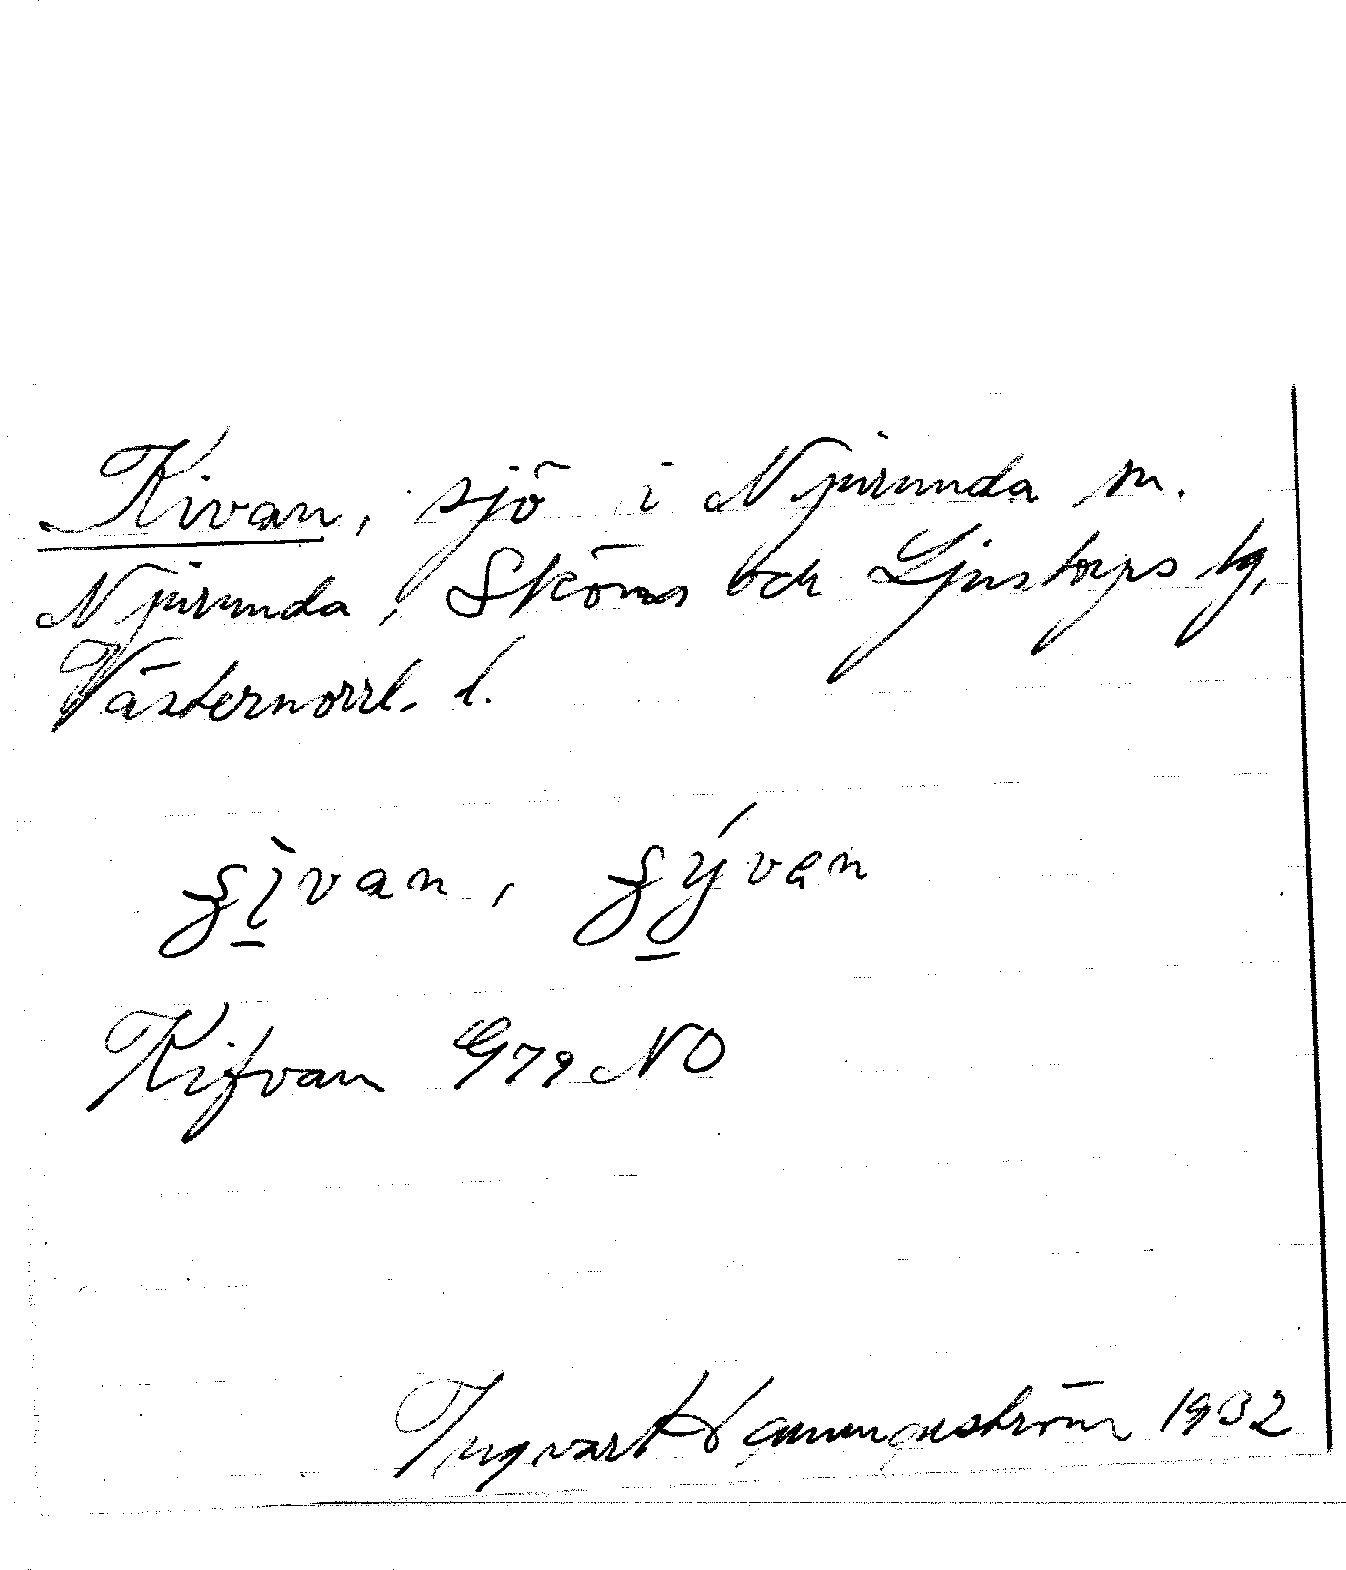 Kivan, sjö i Njurunda sn.
Njurunda, Sköns och Ljustorps tg,
Västernorrl. l.
ʂìvan, ʂývan
Kifvan G79 NO
Ingvart Hemmingström 1932